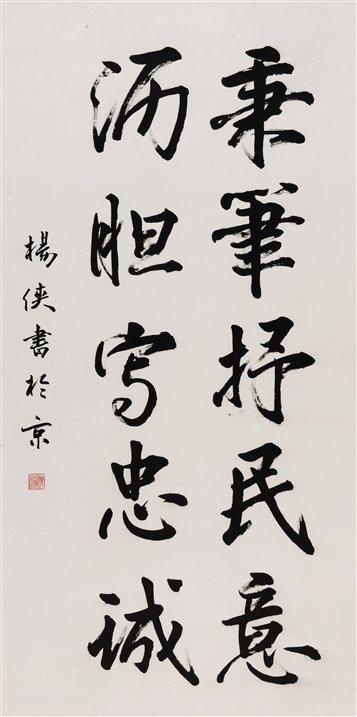 秉筆抒民意
沥胆写忠诚
楊侠書於京